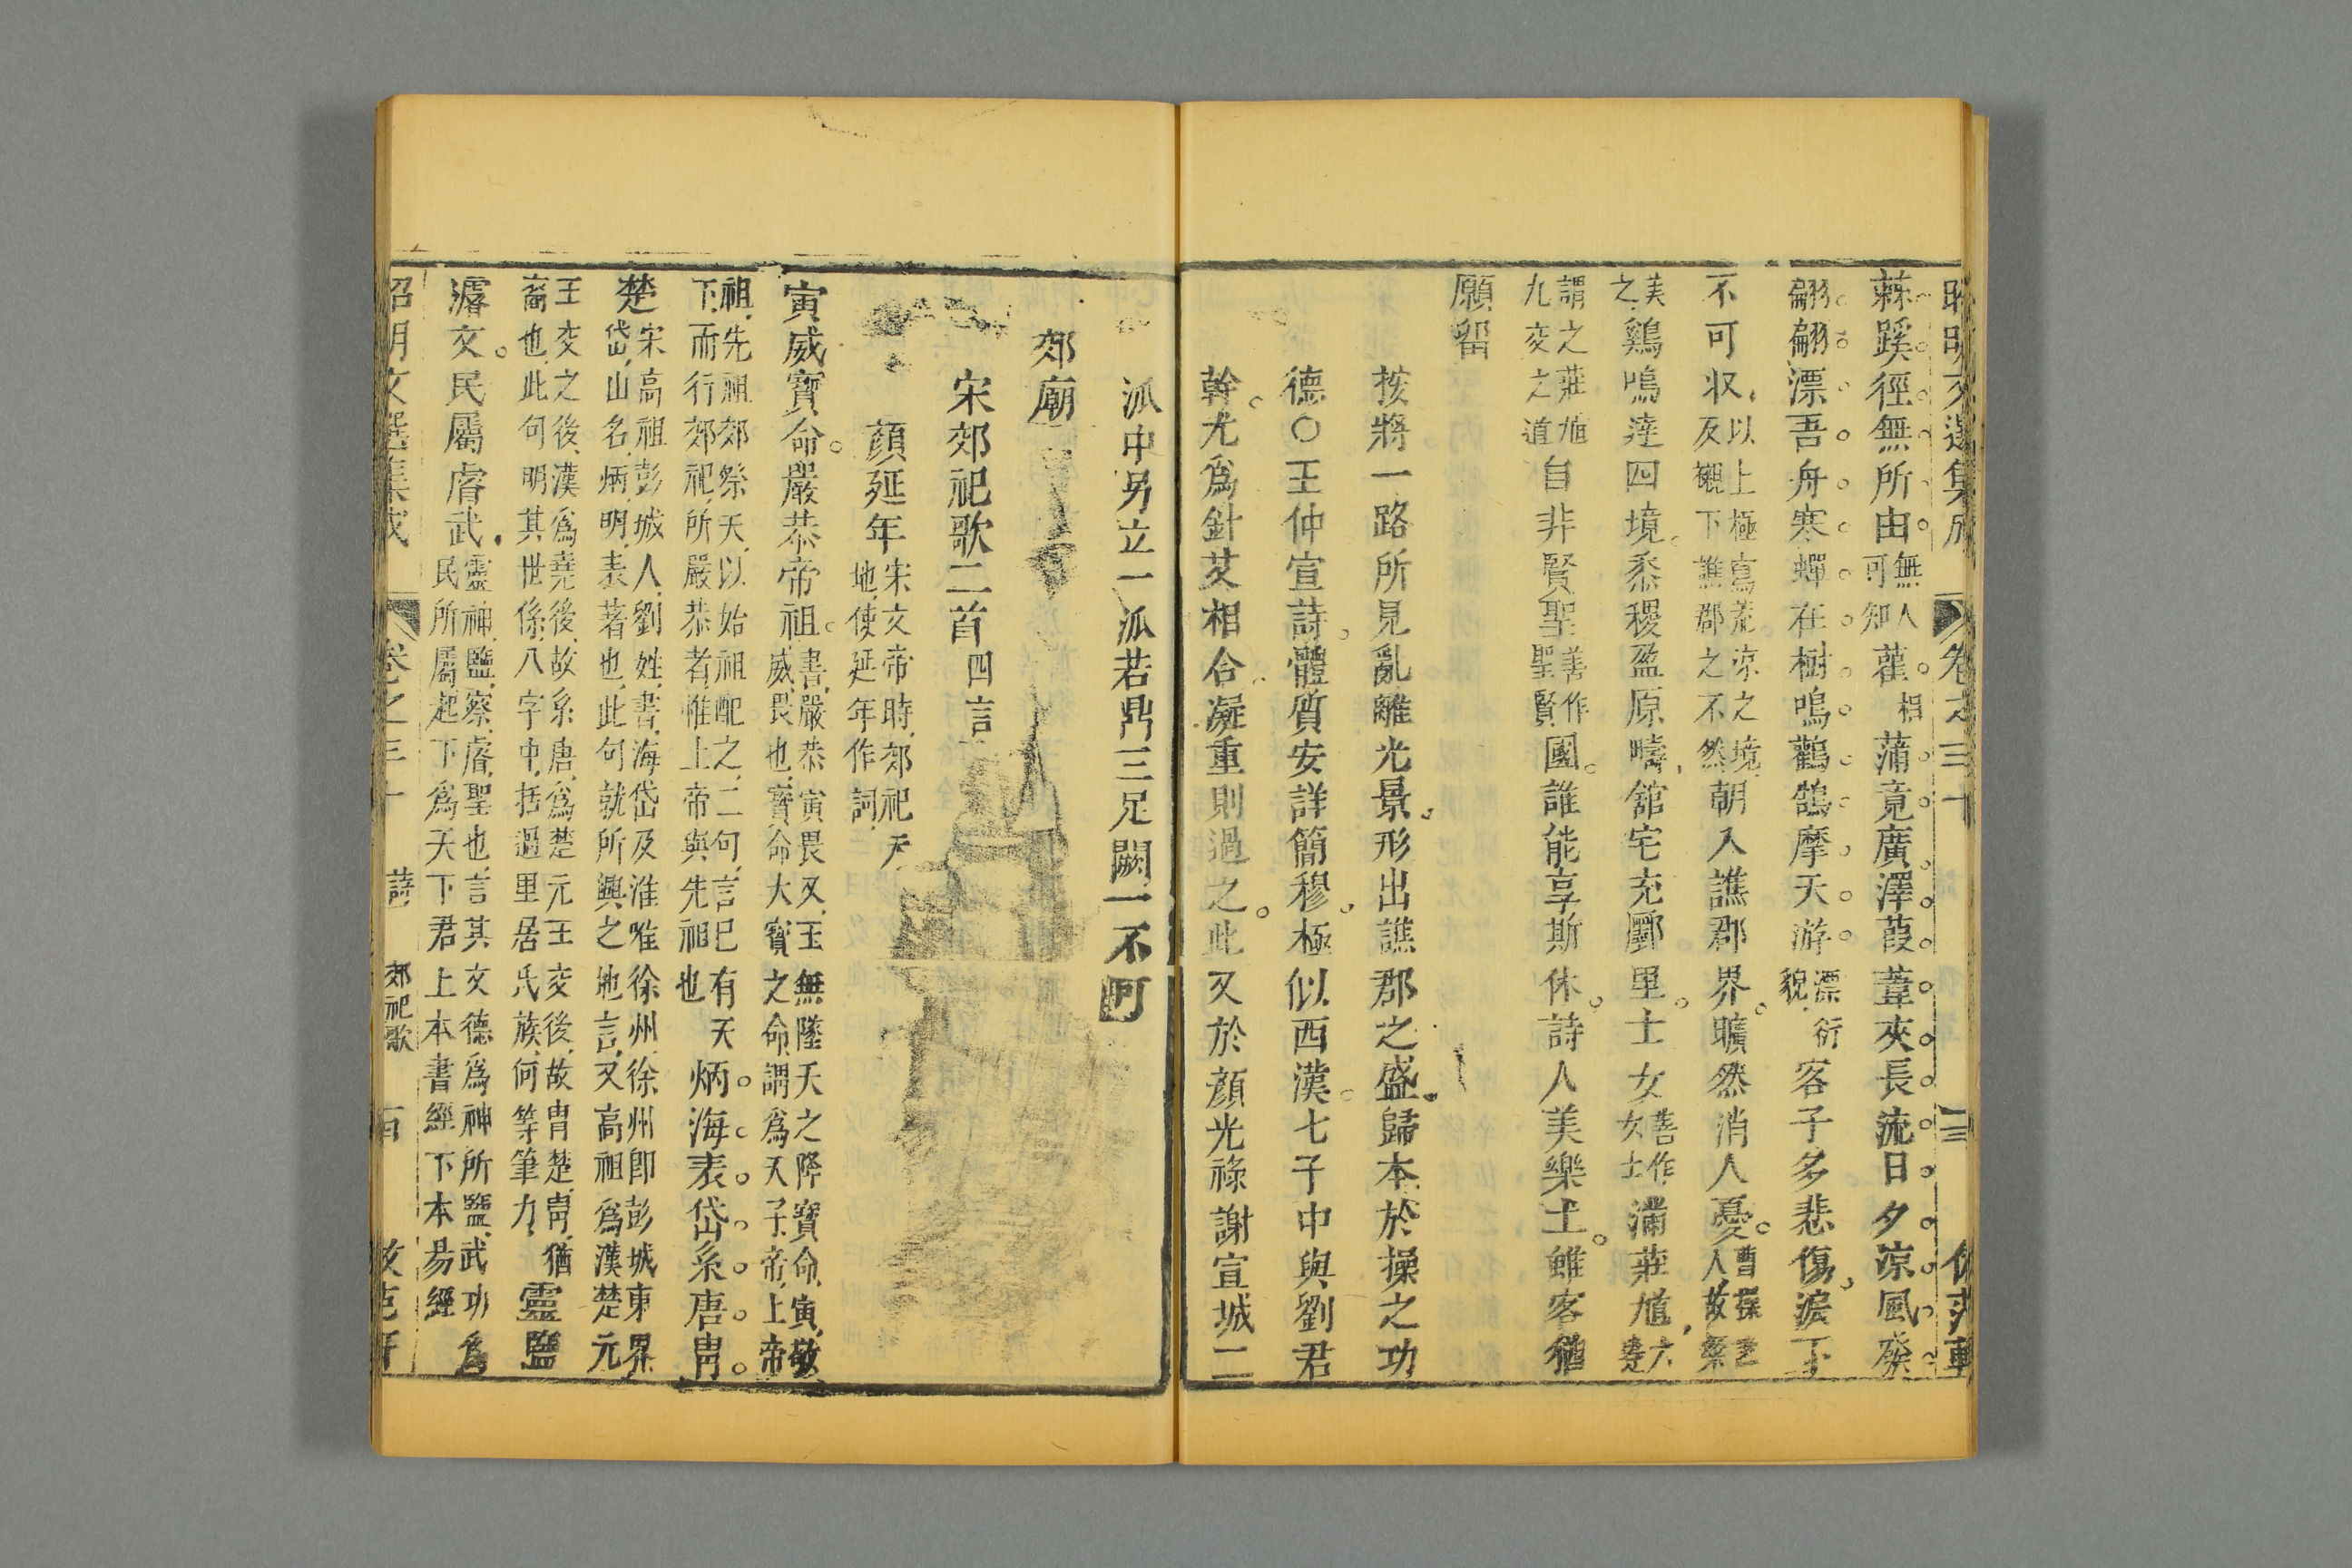 昭明文選集成 卷之三十
蕀蹊徑無所由無人可知雚相蒲竟廣澤葭葦夾長流日夕涼風發
翩翩漂吾舟寒蟬在樹鳴鸛鵠摩天游漂衍貌客子多悲傷淚下
不可收以上極寫荒涼之境反襯下譙郡之不然朝入譙郡界曠然消人憂曹操
之美鷄鳴達四境黍稷盈原疇舘宅充鄽里士女善作女士滿莊馗六達
謂之莊馗九交之道自非賢聖善作聖賢國誰能享斯休詩人美樂土雖客猶
願留
按將一路所見亂離光景形出譙郡之盛歸本於操之功
德○王仲宣詩體質安詳簡穆極似西漢七子中與劉君
幹尤爲針芥相合凝重則過之此又於顔光祿謝宣城二
派中另立一派若鼎三足闕一不可
郊廟
宋郊祀歌二首四言
顔延年宋文帝時郊祀天地使延年作詞
寅威寶命嚴恭帝祖書嚴恭寅畏又王無墜天之降寶命寅敬威畏也寶命大寶之命謂爲天子帝上帝
祖先祖郊祭天以始祖配之二句言已有天下而行郊祀所嚴恭者惟上帝與先祖也炳海表岱系唐胄
楚宋高祖彭城人劉姓書海岱及淮惟徐州徐州卽彭城東界岱山名炳明表著也此句就所興之地言又高祖爲漢楚元
王交之後漢爲堯後故系唐爲楚元王交後故胄楚胄猶裔也此句明其世係八字中括過里居氏族何等筆力靈鑒
濬文民屬睿武靈神鑒察睿聖也言其文德爲神所鑒武功爲民所屬起下爲天下君上本書經下本易經
昭明文選集成 卷之三十 詩 郊祀歌